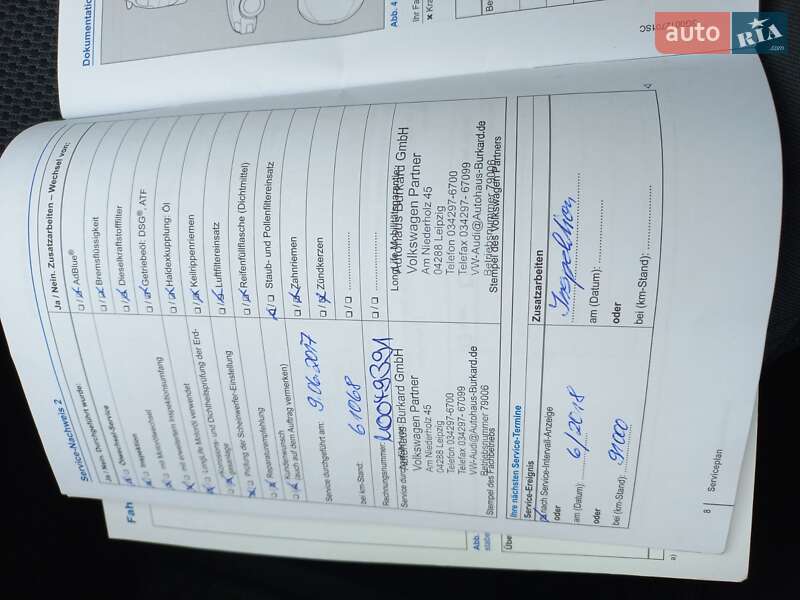 Dokumentation
Abb. 4
Ihr Fa
Kra
Be
auto RIA .com
Service-Nachweis 2
Ja / Nein. Durchgeführt wurde:
Ölwechsel-Service
Inspektion
mit Motorölwechsel
mit erweitertem Inspektionsumfang
LongLife Motoröl verwendet
Korrosions- und Dichtheitsprüfung der Erd-
gasanlage
Prüfung der Scheinwerfer-Einstellung
Reparaturempfehlung
Kundenwunsch
(auch auf dem Auftrag vermerken)
Service durchgeführt am:
9.06.2017
bei km-Stand:
61068
Rechnungsnummer:
Service durchgeführt
Autohaus Burkard GmbH
Volkswagen Partner
Am Niederholz 45
04288 Leipzig
Telefon 034297-6700
Telefax 034297- 67099
VW-Audi@Autohaus-Burkard.de
Betriebsnummer 79006
Stempel des Fachbetriebs
Ja / Nein. Zusatzarbeiten – Wechsel von:
AdBlue®
Bremsflüssigkeit
Dieselkraftstofffilter
Getriebeöl: DSG®, ATF
Haldexkupplung: Öl
Keilrippenriemen
Luftfiltereinsatz
Reifenfüllflasche (Dichtmittel)
Staub- und Pollenfiltereinsatz
Zahnriemen
Zündkerzen
LongLife Mobilitätsgarantie
Autohaus Burkard GmbH
Volkswagen Partner
Am Niederholz 45
04288 Leipzig
Telefon 034297-6700
Telefax 034297- 67099
VW-Audi@Autohaus-Burkard.de
Betriebsnummer 79006
Stempel des Volkswagen Partners
Ihre nächsten Service-Termine
Service-Ereignis
nach Service-Intervall-Anzeige
oder
6/2018
am (Datum):
oder
91000
bei (km-Stand):
Zusatzarbeiten
Inspektion
am (Datum):
oder
bei (km-Stand):
8
Serviceplan
Fah
Abb.
Übe
a)